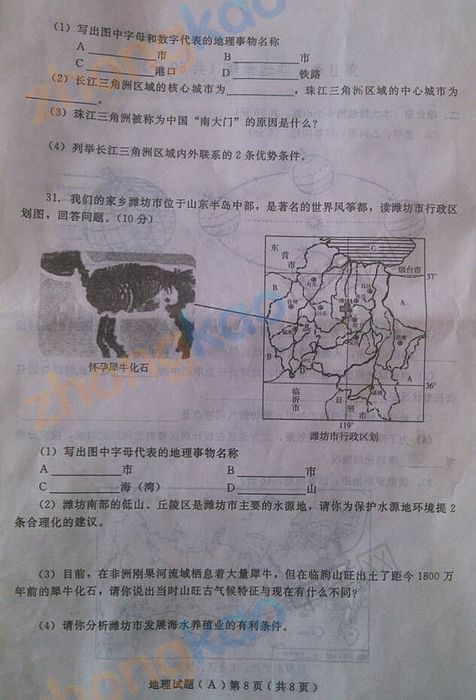 （1）写出图中字母和数字代表的地理事物名称
A________市 B________市
C________港口 D________铁路
（2）长江三角洲区域的核心城市为________，珠江三角洲区域的中心城市为
________。
（3）珠江三角洲被称为中国“南大门”的原因是什么？
（4）列举长江三角洲区域内外联系的2条优势条件。
31. 我们的家乡潍坊市位于山东半岛中部，是著名的世界风筝都，读潍坊市行政区
划图，回答问题。(10分)
东营市
C
烟台市
37°
B
A
B
A
B
D
36°
临沂市
日照市
119°
怀孕犀牛化石
潍坊市行政区划
（1）写出图中字母代表的地理事物名称
A________市 B________市
C________海（湾） D________山
（2）潍坊南部的低山、丘陵区是潍坊市主要的水源地，请你为保护水源地环境提2
条合理化的建议。
（3）目前，在非洲刚果河流域栖息着大量犀牛，但在临朐山旺出土了距今1800万
年前的犀牛化石，请你说出当时山旺古气候特征与现在有什么不同？
（4）请你分析潍坊市发展海水养殖业的有利条件。
地理试题（A）第8页（共8页）
zhongkao